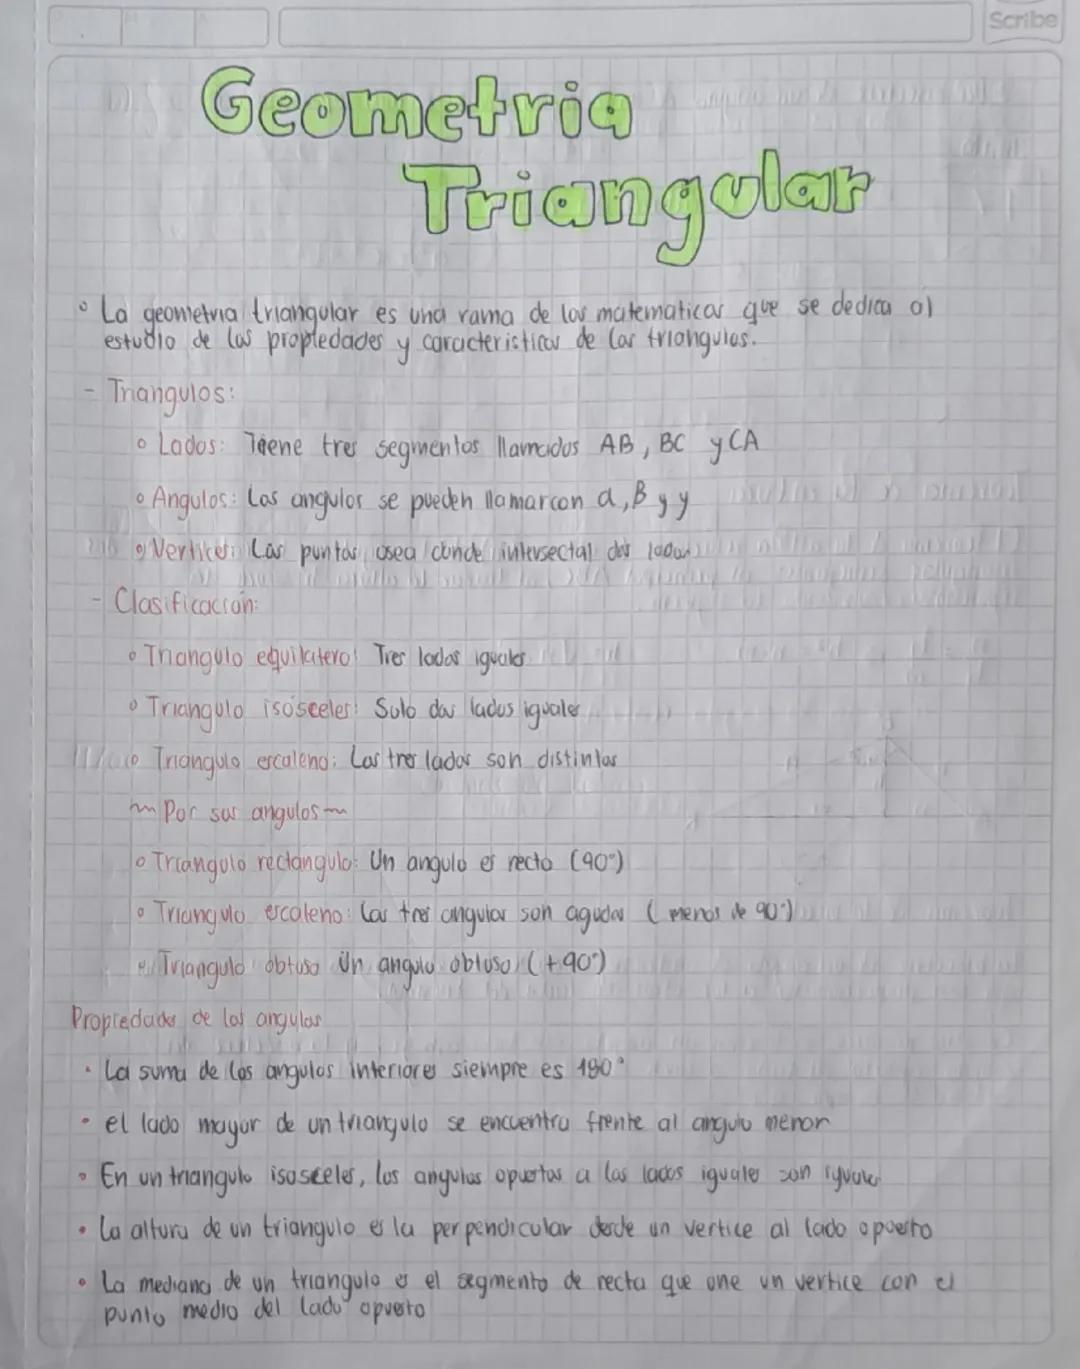 Scribe
Geometria
Triangular
La geometria triangular es una rama de las matematicas que se dedica al
estudio de las propiedades y caracteristicas de los triangulos.
- Triangulos:
Lados: Tiene tres segmentos llamados AB, BC y CA
Angulos: Los angulos se pueden llamar con α, β y γ
Vertices: Los puntos osea donde intersectal dos lados
- Clasificación:
Triangulo equilatero: Tres lados iguales
Triangulo isósceles: Solo dos lados iguales
Triangulo escaleno: Los tres lados son distintos
~ Por sus angulos ~
Triangulo rectangulo: Un angulo es recto (90°)
Triangulo escaleno: Los tres angulos son agudos (menos de 90°)
Triangulo obtuso Un angulo obtuso (+90°)
Propiedades de los angulos
La suma de los angulos interiores siempre es 180°
el lado mayor de un triangulo se encuentra frente al angulo menor
En un triangulo isosceles, los angulos opuestos a los lados iguales son iguales
La altura de un triangulo es la perpendicular desde un vertice al lado opuesto
La mediana de un triangulo es el segmento de recta que une un vertice con el
punto medio del lado opuesto